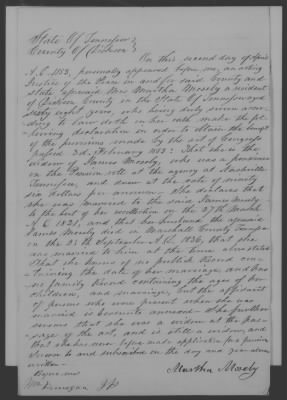 State Of Tennessee
County Of Dickson
On this second day of April
A.D. 1853, personally appeared before me, an acting
Justice of the Peace in and for said County and
state aforesaid Mrs Martha Mosely a resident
of Dickson County in the State Of Tennessee aged
sixty eight years, who being duly sworn
according to law doth on her oath make the
following declaration in order to obtain the benefit
of the provisions made by the act of Congress
passed 3d, February 1853. That she is the
widow of James Mosely, who was a pensioner
on the Pension roll at the agency at Nashville
Tennessee, and drew at the rate of ninety
six dollars per annum. She declares that
she was married to the said James Mosely
to the best of her recollection on the 27th March
A.D. 1831, and that her husband, the aforesaid
James Mosely died in Marshall County
on the 25th September A.D. 1836, that she
was married to him at the time above stated
that she knows of no publick Record
containing the date of her marriage, and has
no family Record containing the ages of her
children, and marriage, but the affidavit
of persons who were present when she was
married is hereunto annexed. She further
swears that she was a widow at the
passage of the act, and is still a widow, and
that she has never before made application for a pension
Sworn to and subscribed on the day and year above
written
Before me
Martha Mosely
Wm Finnegan J.P.